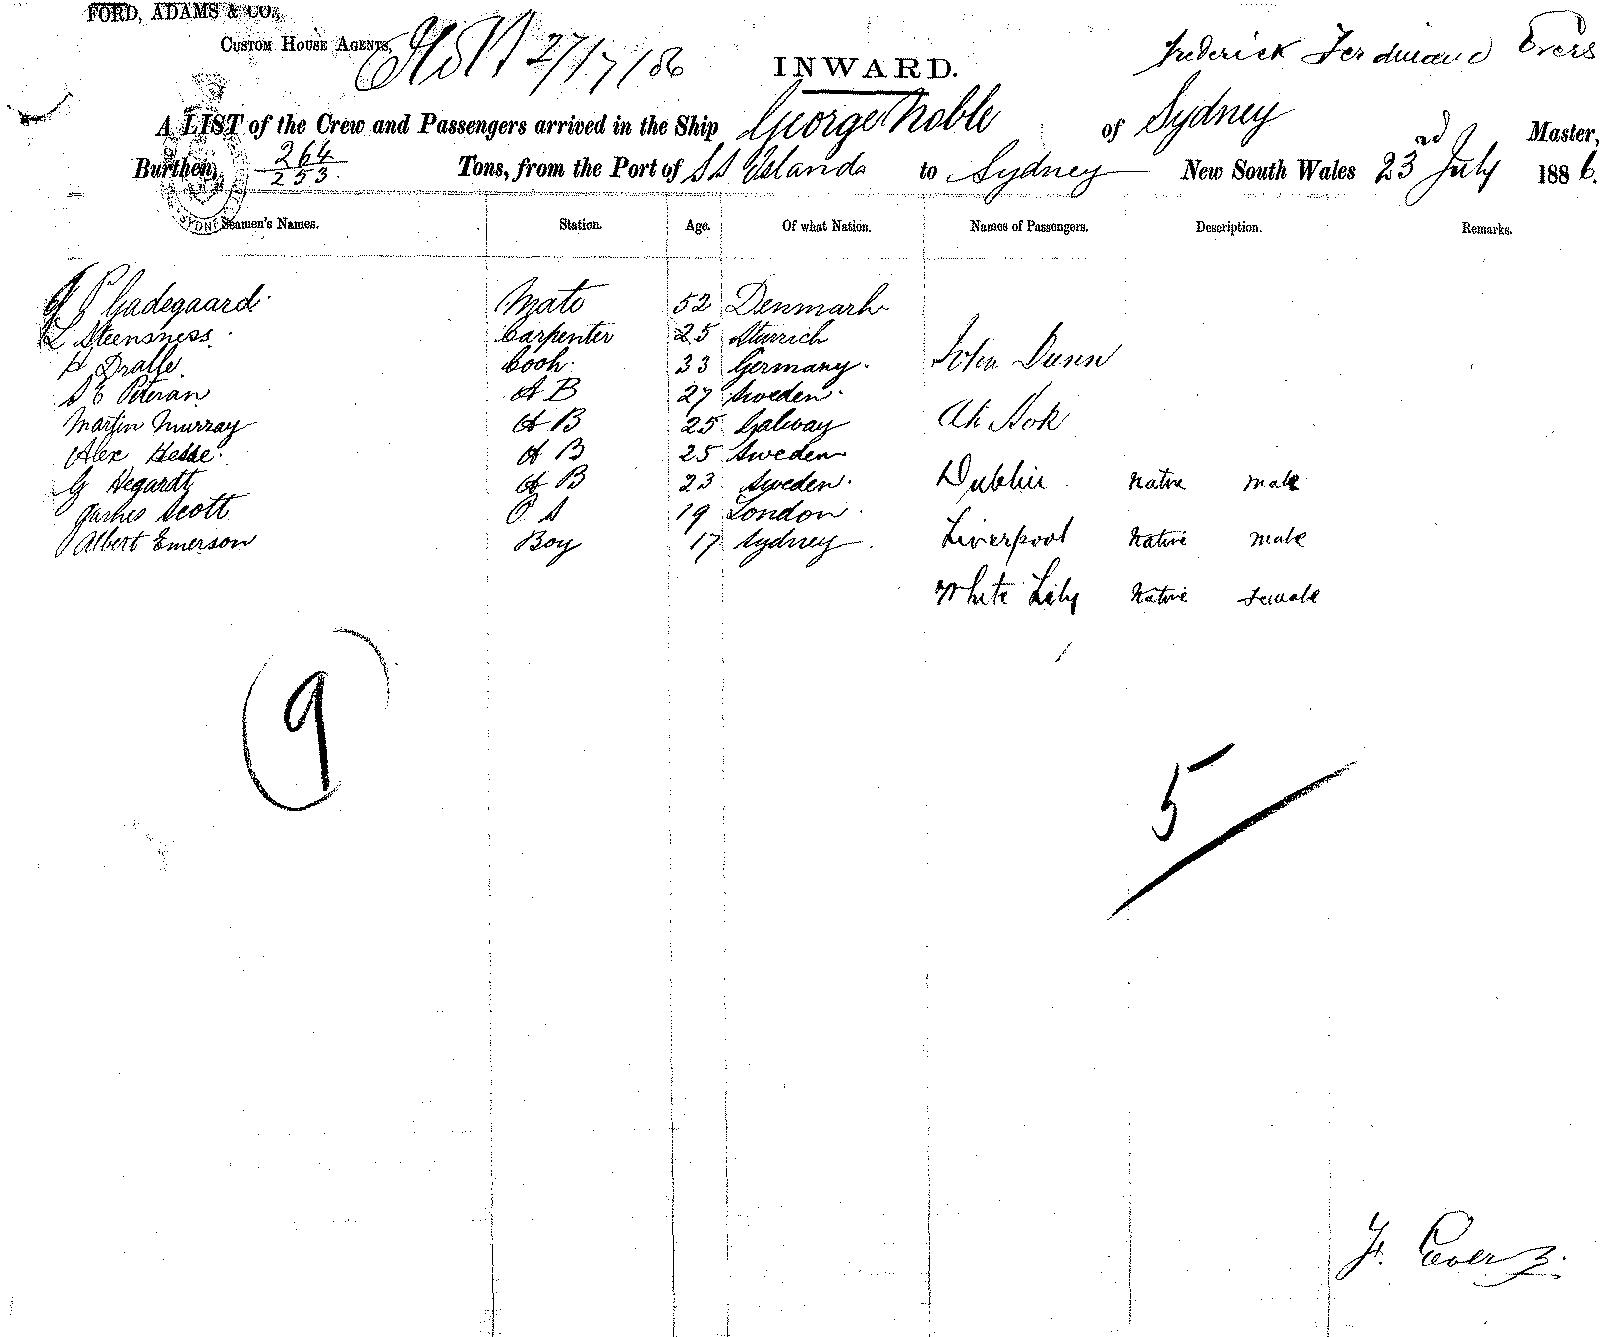 FORD, ADAMS & CO.,
CUSTOM HOUSE AGENTS,
27/7/86
INWARD.
Frederick Ferdinand Evers
A LIST of the Crew and Passengers arrived in the Ship George Noble of Sydney Master,
Burthen, 264/253 Tons, from the Port of S S Islands to Sydney New South Wales 23rd July 1886.
SYDNEY
Seamen's Names. Station. Age. Of what Nation. Names of Passengers. Description. Remarks.
P Gadegaard Mate 52 Denmark
L Steensness Carpenter 25
H Dralle Cook 33 Germany. John Dunn
A B 27 Sweden.
Martin Murray A B 25 Galway Ah Hok
Alex Hesse A B 25 Sweden
G Hegardt A B 23 Sweden. Dublin Native male
James Scott O S 19 London
Albert Emerson Boy 17 Sydney Liverpool Native male
White Lily Native female
9
5
F. Evers.